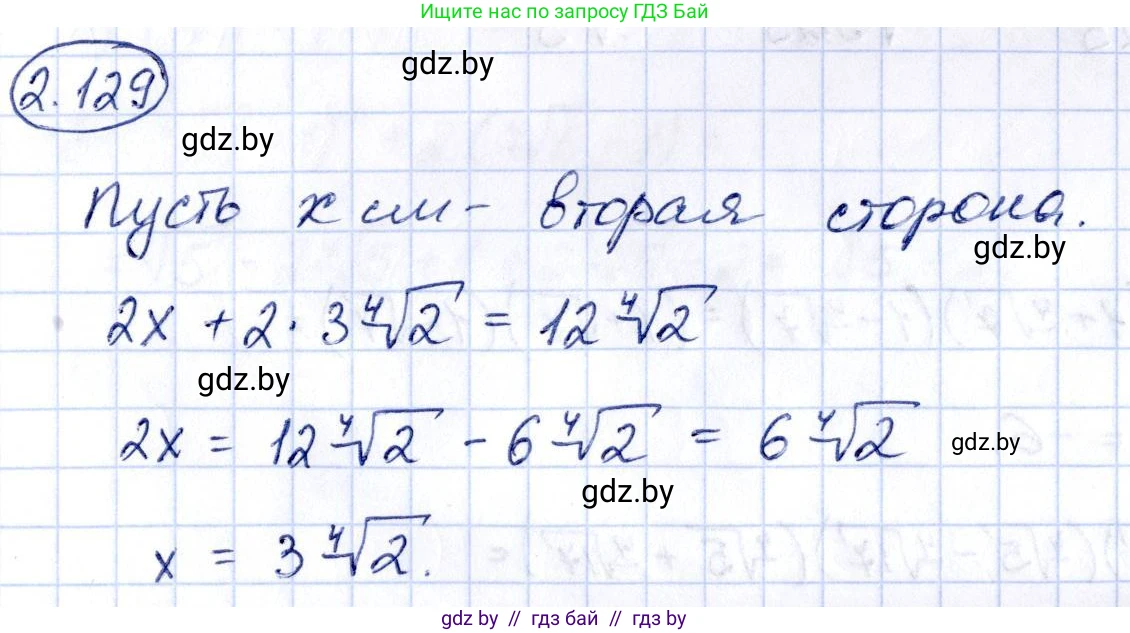 Ищите нас по запросу ГДЗ Бай
2.129
gdz.by
gdz.by
Пусть x см - вторая сторона.
gdz.by
2x + 2 · 3∜2 = 12∜2
gdz.by
2x = 12∜2 - 6∜2 = 6∜2
gdz.by
gdz.by
x = 3∜2.
gdz.by // гдз бай // гдз by